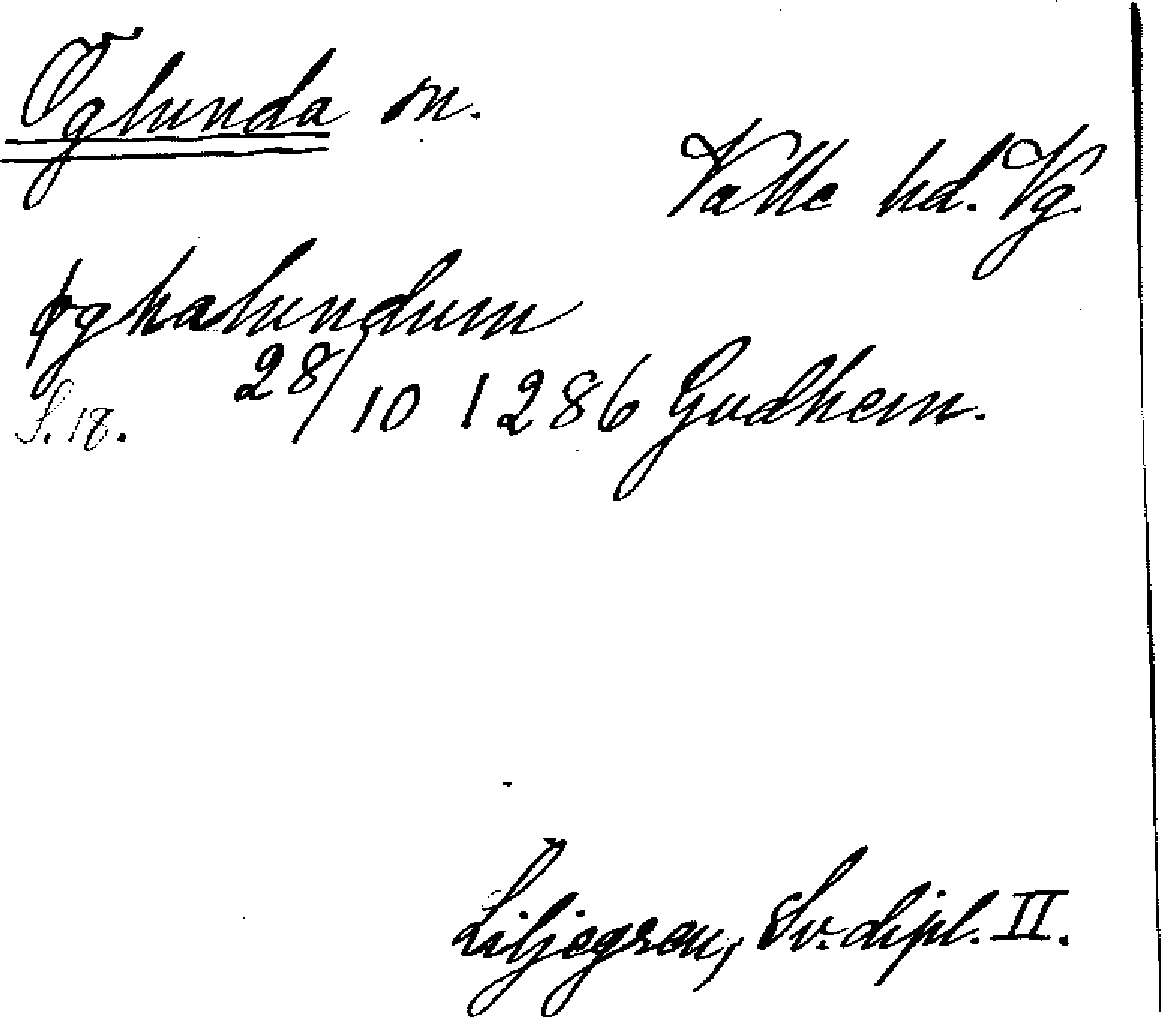 Öglunda sn.
Valle hd. Vg.
øghalundum
28/10 1286 Gudhem.
S. 18.
Liljegren, Sv. dipl. II.